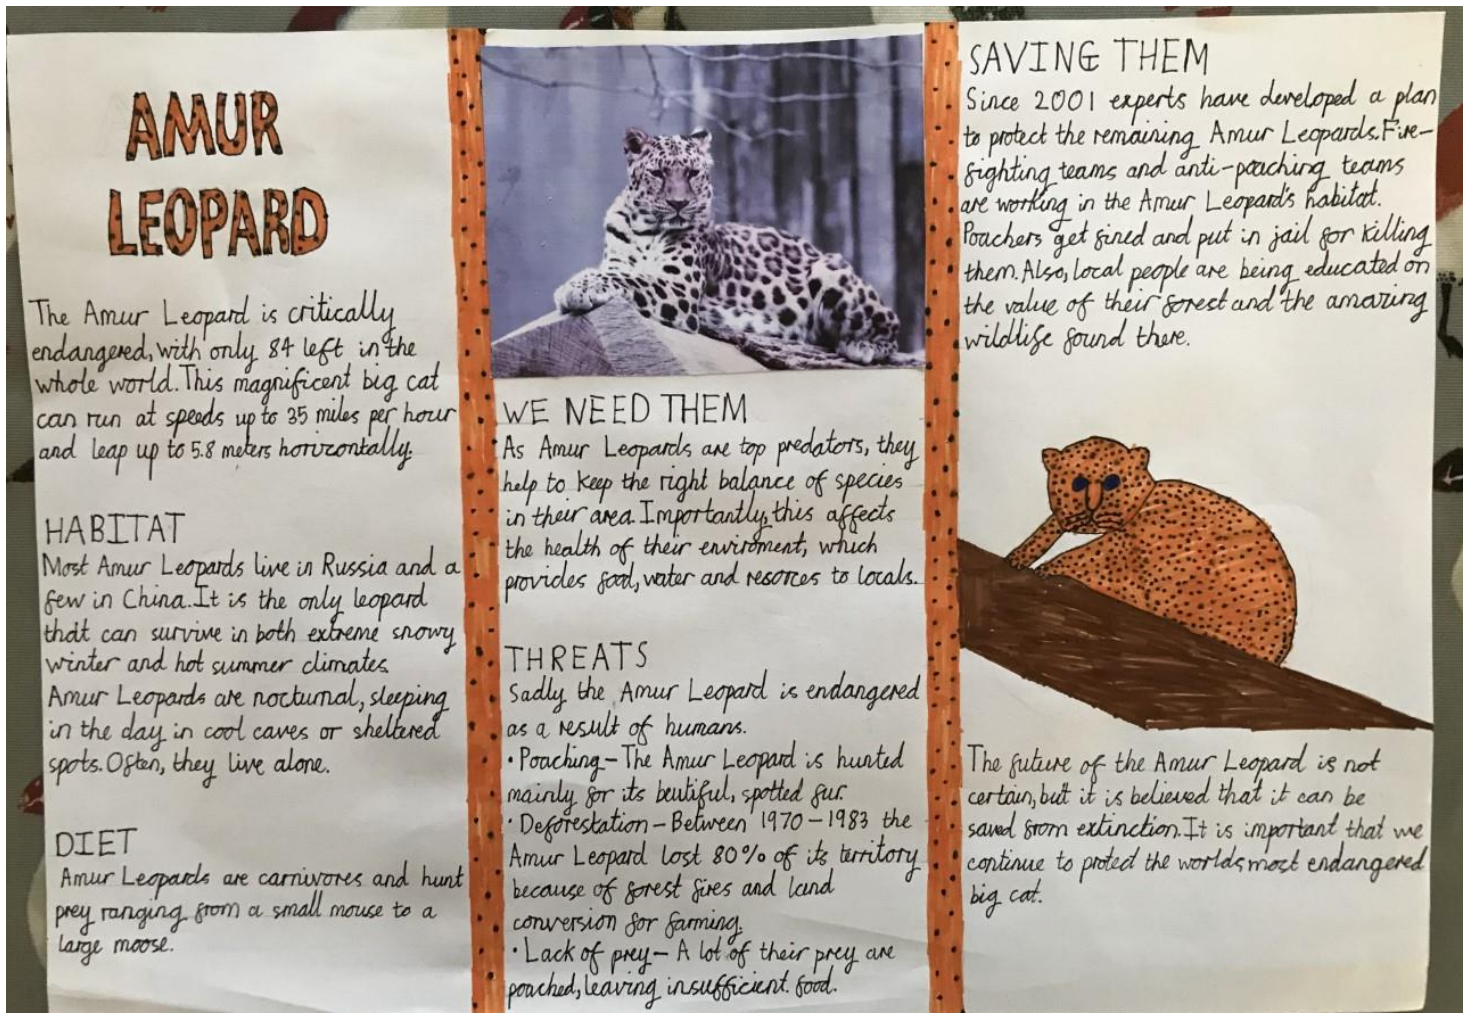 AMUR
LEOPARD
The Amur Leopard is critically
endangered, with only 84 left in the
whole world. This magnificent big cat
can run at speeds up to 35 miles per hour
and leap up to 5.8 meters horizontally.
HABITAT
Most Amur Leopards live in Russia and a
few in China. It is the only leopard
that can survive in both extreme snowy
winter and hot summer climates
Amur Leopards are nocturnal, sleeping
in the day in cool caves or sheltered
spots. Often, they live alone.
DIET
Amur Leopards are carnivores and hunt
prey ranging from a small mouse to a
large moose.
WE NEED THEM
As Amur Leopards are top predators, they
help to keep the right balance of species
in their area. Importantly, this affects
the health of their enviroment, which
provides food, water and resorces to locals.
THREATS
Sadly the Amur Leopard is endangered
as a result of humans.
• Poaching – The Amur Leopard is hunted
mainly for its beutiful, spotted fur.
• Deforestation – Between 1970 – 1983 the
Amur Leopard lost 80% of its territory
because of forest fires and land
conversion for farming.
• Lack of prey – A lot of their prey are
poached, leaving insufficient. food.
SAVING THEM
Since 2001 experts have developed a plan
to protect the remaining Amur Leopards. Fire-
fighting teams and anti-poaching teams
are working in the Amur Leopard's habitat.
Poachers get fined and put in jail for killing
them. Also, local people are being educated on
the value of their forest and the amazing
wildlife found there.
The future of the Amur Leopard is not
certain, but it is believed that it can be
saved from extinction. It is important that we
continue to protect the worlds most endangered
big cat.